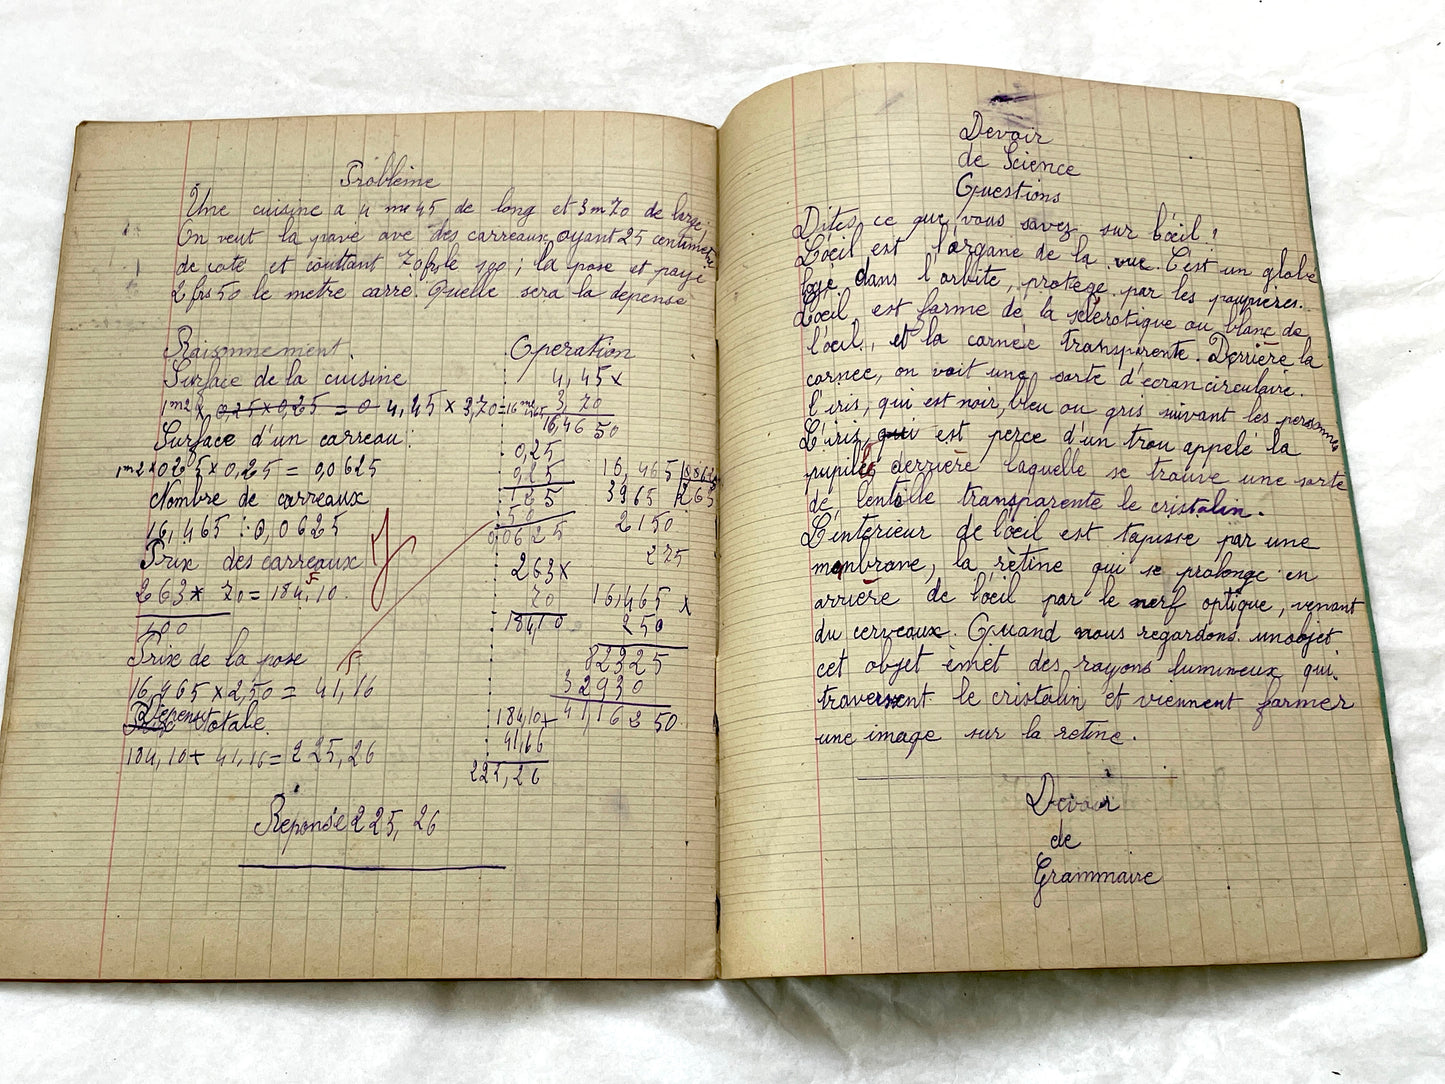 Problème
Une cuisine a 4 m 45 de long et 3 m 70 de large,
On veut la pavé ave des carreaux ayant 25 centimetre
de coté et coûttant 70 frs le 100 ; la pose et payé
2 frs 50 le metre carre. Quelle sera la depense
Raisonnement
Surface de la cuisine
1 m2 x 0,25 x 0,25 = 0 4,45 x 3,70 = 16 m2 465
Surface d'un carreau :
1 m2 x 0,25 x 0,25 = 0,0625
Nombre de carreaux
16,465 : 0,0625
Prix des carreaux
263 x 70 = 184,10
100
Prix de la pose
16,465 x 2,50 = 41,16
Dépense totale
184,10 + 41,16 = 225,26
Réponse 225,26
Operation
4,45 x
3,70
16,46 50
0,25
0,25
125
50
0,0625
263 x
70
184,10
16,465
3965 263
2150
275
16,465 x
250
82325
32930
41,16 250
184,10 +
41,16
225,26
Devoir
de Science
Questions
Dites ce que vous savez sur l'œil !
L'œil est l'organe de la vue. C'est un globe
logé dans l'orbite, protége par les paupières.
L'œil est forme de la sclérotique ou blanc de
l'œil, et la cornée transparente. Derrière la
cornée, on voit une sorte d'écran circulaire.
l'iris, qui est noir, bleu ou gris suivant les personnes
L'iris, qui est perce d'un trou appelé la
pupille derrière laquelle se trouve une sorte
de lentille transparente le cristalin.
L'intérieur de l'œil est tapisse par une
membrane, la rètine qui se prolonge en
arrière de l'œil par le nerf optique, venant
du cerveaux. Quand nous regardons unobjet
cet objet émet des rayons lumineux qui
traversent le cristalin et viennent former
une image sur la retine.
Devoir
de
Grammaire